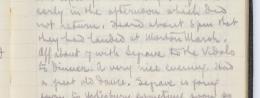 early in the afternoon which did
not return. Heard about 5pm that
they had landed at Morton Marsh.
Off about 7 with Segrave to the Vidals
to Dinner. A very nice evening. Had
a great old dance. Segrave is
down to Salisbury sometime